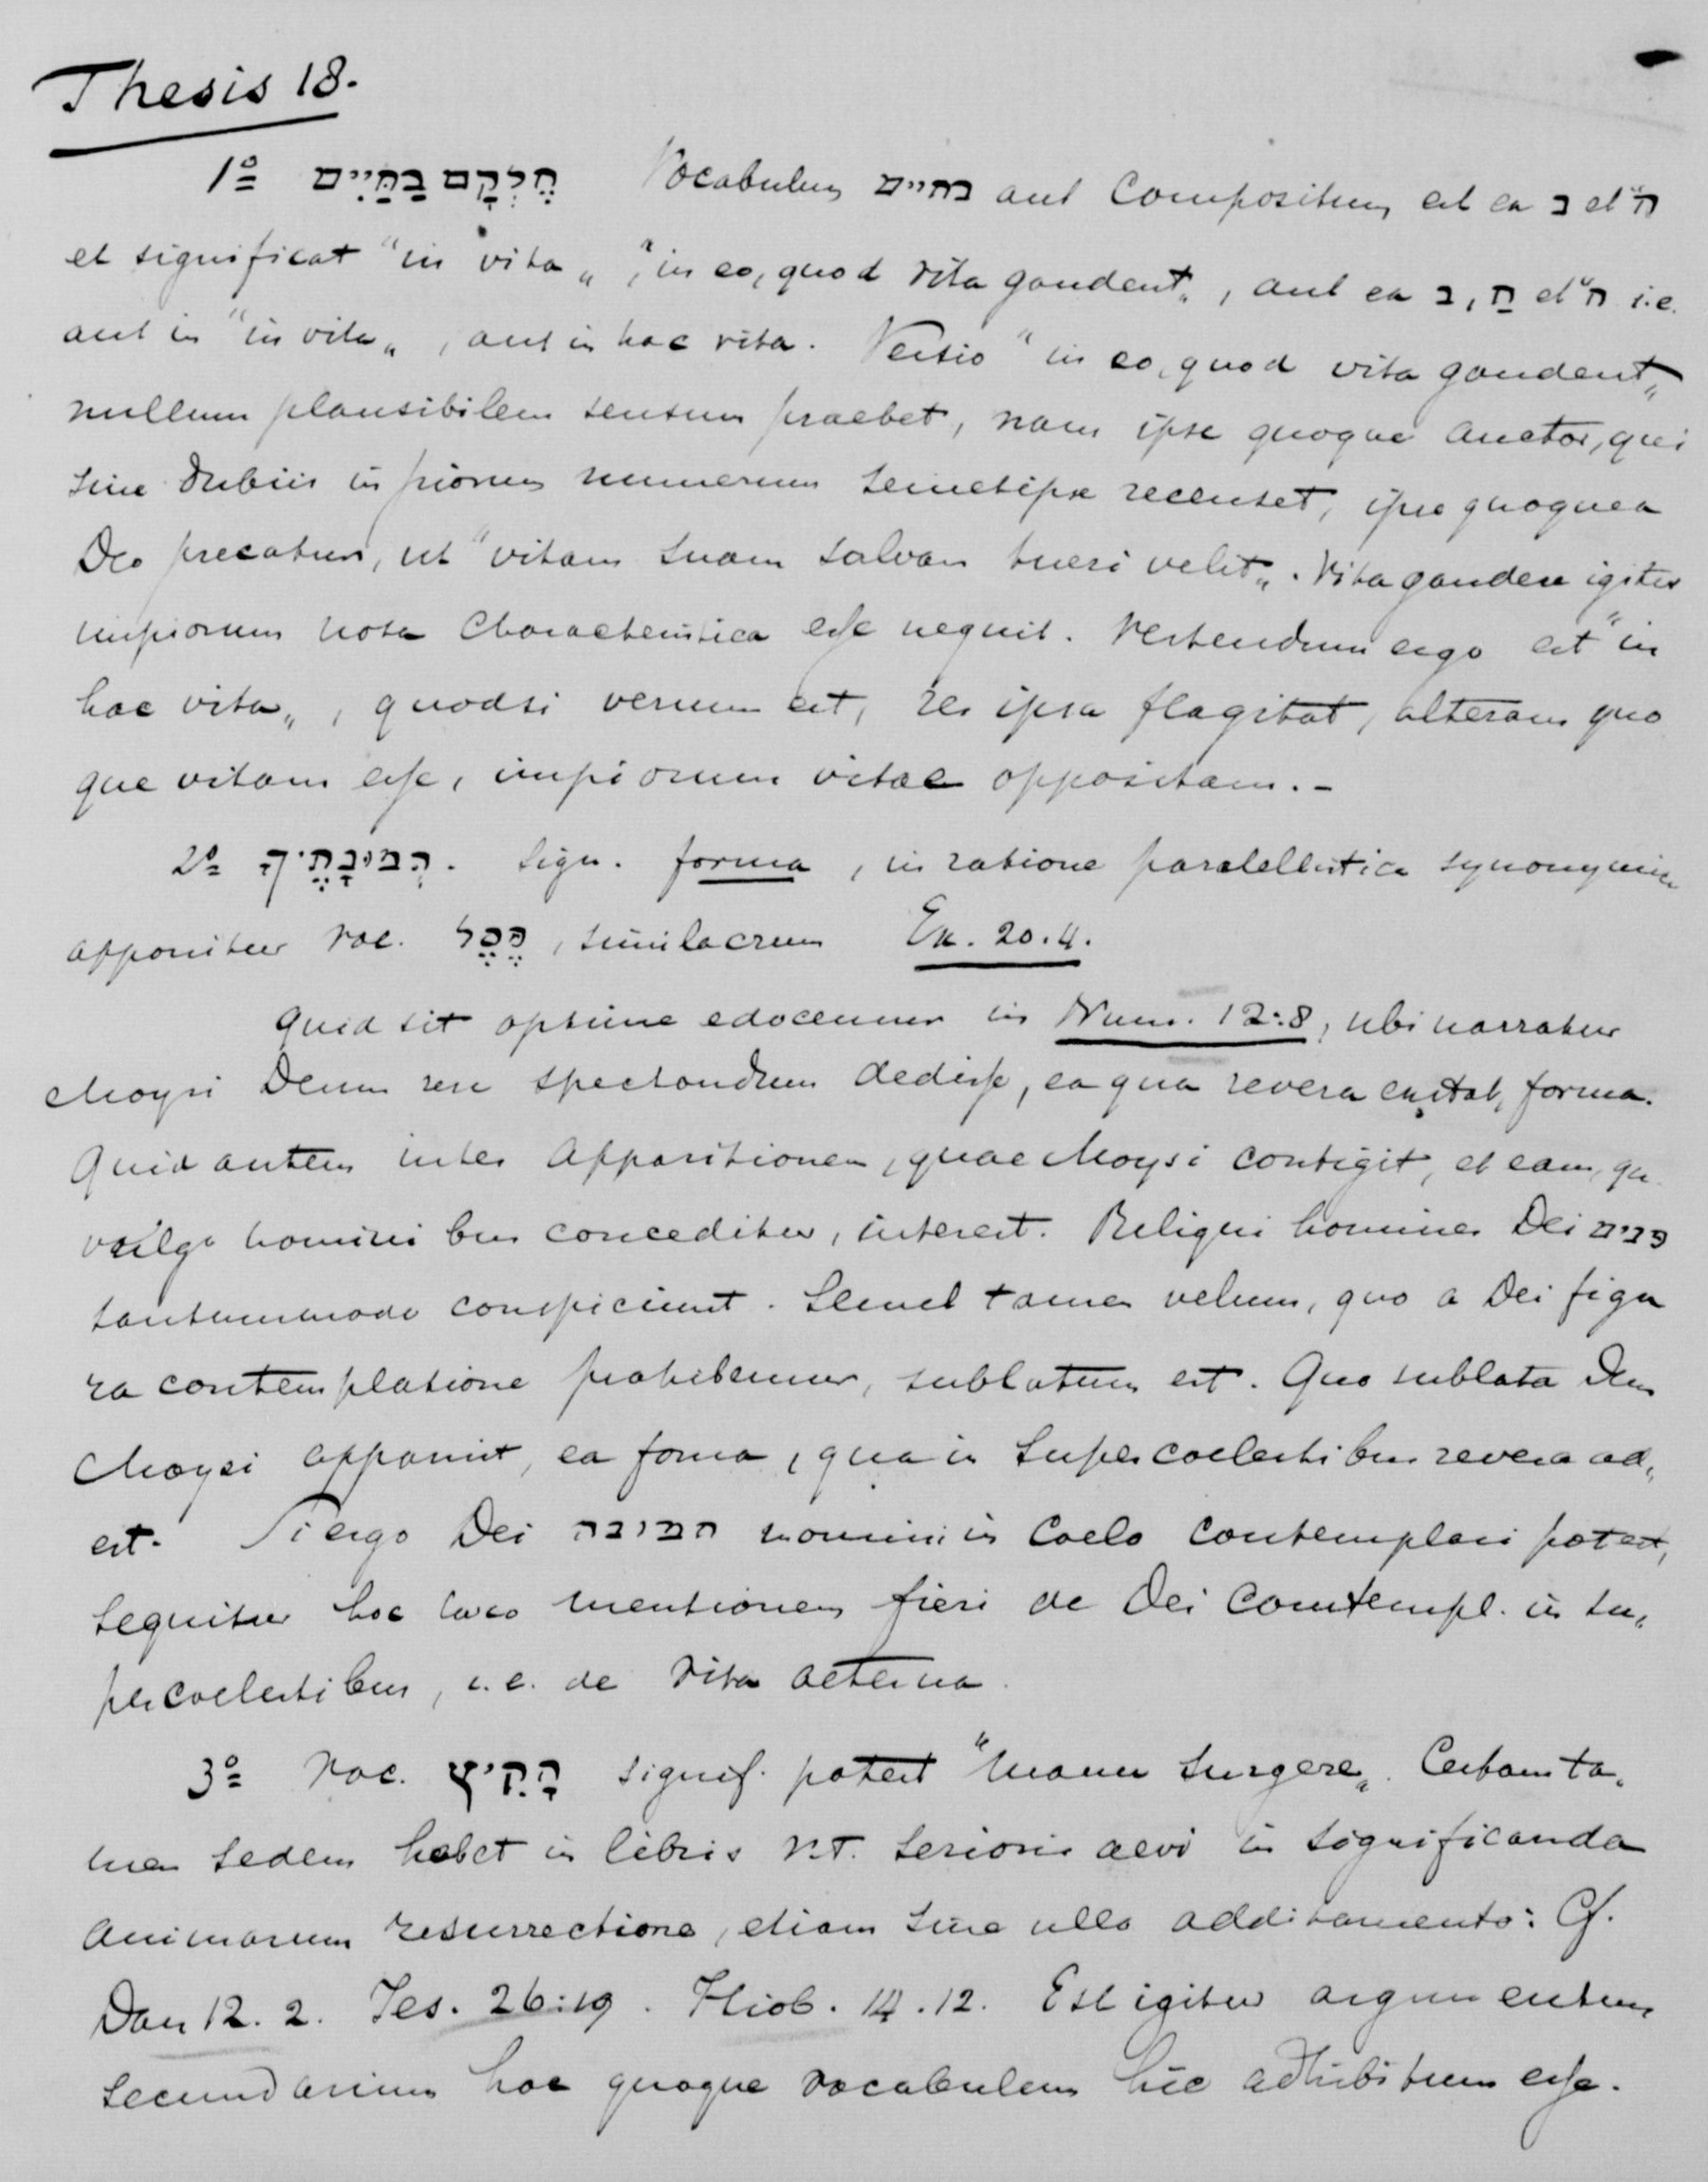 Thesis 18.
1º חֶלְקָם בַּחַיִּים Vocabulum בחיים aut compositum est ex ב et ח"
et significat "in vita„ , "in eo, quod vita gaudent„ , aut ex ב, הַ et ח" i.e.
aut in "in vita„ , aut in hac vita. Versio "in eo, quod vita gaudent„
nullum plausibilem sensum praebet, nam ipse quoque auctor, qui
sine dubiis in piorum numerum semetipse recenset, ipse quoque a
Deo precatur, ut "vitam suam salvam tueri velit„. Vita gaudere igitur
impiorum nota characteristica esse nequit. Vertendum ergo est "in
hac vita„ , quodsi verum est, res ipsa flagitat, alteram quo
que vitam esse, impiorum vitae oppositam. -
2º תְּמוּנָתֶיךָ. Sign. forma , in ratione paralellistica synonymica
apponitur voc. פֶּסֶל , simulacrum Ex. 20.4.
Quid sit optime edocemur in Num. 12:8, ubi narratur
Moysi Deum sese spectandum dedisse, ea qua revera exstat, forma.
Quid autem inter apparitionem, quae Moysi contigit, et eam, qu
vulgo hominibus conceditur, interest. Reliqui homines Dei פנים
tantummodo conspiciunt. Semel tamen velum, quo a Dei figu
ra contemplatione prohibemur, sublatum est. Quo sublato Deus
Moysi apparuit, ea forma, qua in supercoelestibus revera ad„
est. Si ergo Dei תמונה homini in coelo contemplari potest,
sequitur hoc loco mentionem fieri de Dei comtempl. in su„
percoelestibus, i.e. de vita aeterna.
3º Voc. הָקִיץ signif. potest "mane surgere„. Certam ta„
men sedem habet in libris V.T. serioris aevi in significanda
animarum resurrectione, etiam sine ullo additamento: Cf.
Dan 12. 2. Jes. 26:19. Hiob. 14.12. Est igitur argumentum
secundarium hoc quoque vocabulum hic adhibitum esse.